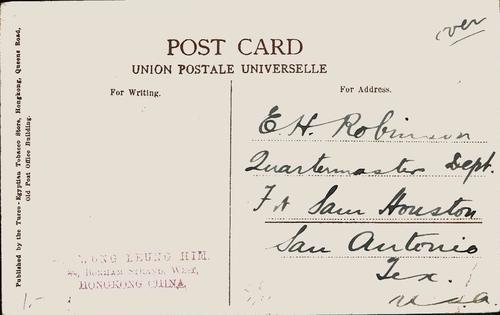 over
POST CARD
UNION POSTALE UNIVERSELLE
For Writing.
For Address.
Published by the Turco-Egyptian Tobacco Store, Hongkong, Queens Road,
Old Post Office Building.
E. H. Robinson
Quartermaster Dept.
Ft Sam Houston
San Antonio
Tex.
U.S.A.
LEUNG HIM,
BONHAM STRAND, WEST,
HONGKONG CHINA.
1.-